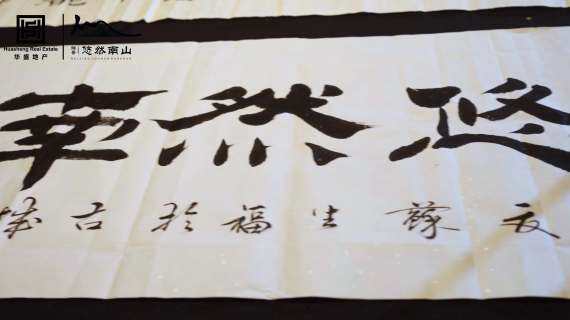 Huasheng Real Estate
华盛地产
悠然南山
悠然
蘇生福於古城